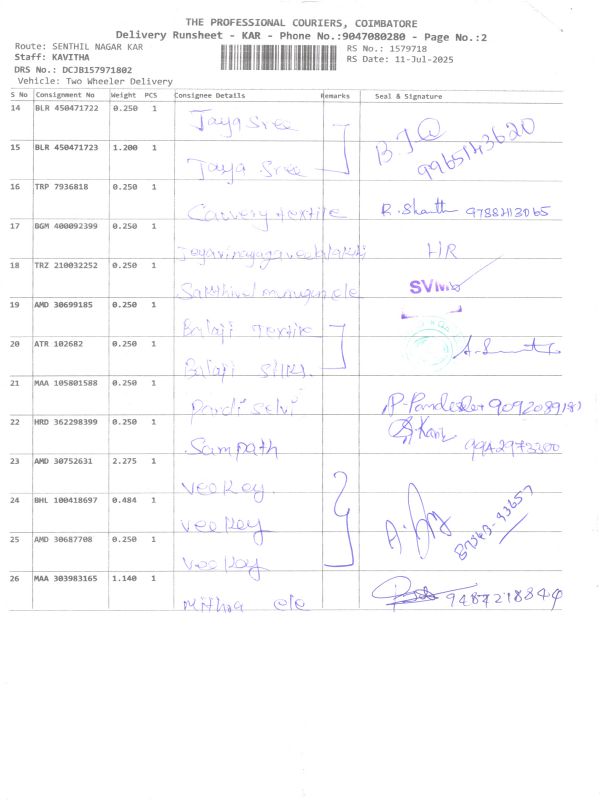 THE PROFESSIONAL COURIERS, COIMBATORE
Delivery Runsheet - KAR - Phone No.:9047080280 - Page No.:2
Route: SENTHIL NAGAR KAR RS No.: 1579718
Staff: KAVITHA RS Date: 11-Jul-2025
DRS No.: DCJB157971802
Vehicle: Two Wheeler Delivery
S No Consignment No Weight PCS Consignee Details Remarks Seal & Signature
14 BLR 450471722 0.250 1 Jaya Sree
B.J
9965143620
15 BLR 450471723 1.200 1 Jaya Sree
16 TRP 7936818 0.250 1 Cauvery textile R. Shanth 97882113065
17 BGM 400092399 0.250 1 HR
18 TRZ 210032252 0.250 1 Sakthivel murugan cle
19 AMD 30699185 0.250 1 Balaji textile
20 ATR 102682 0.250 1 Balaji silks.
21 MAA 105801588 0.250 1 Pandi selvi P. Pandeselvi 9092089181
22 HRD 362298399 0.250 1 Sampath 9942973300
23 AMD 30752631 2.275 1 Veekey.
24 BHL 100418697 0.484 1 Veekey
25 AMD 30687708 0.250 1 Veekey
26 MAA 303983165 1.140 1 Mithra cle 9487218844